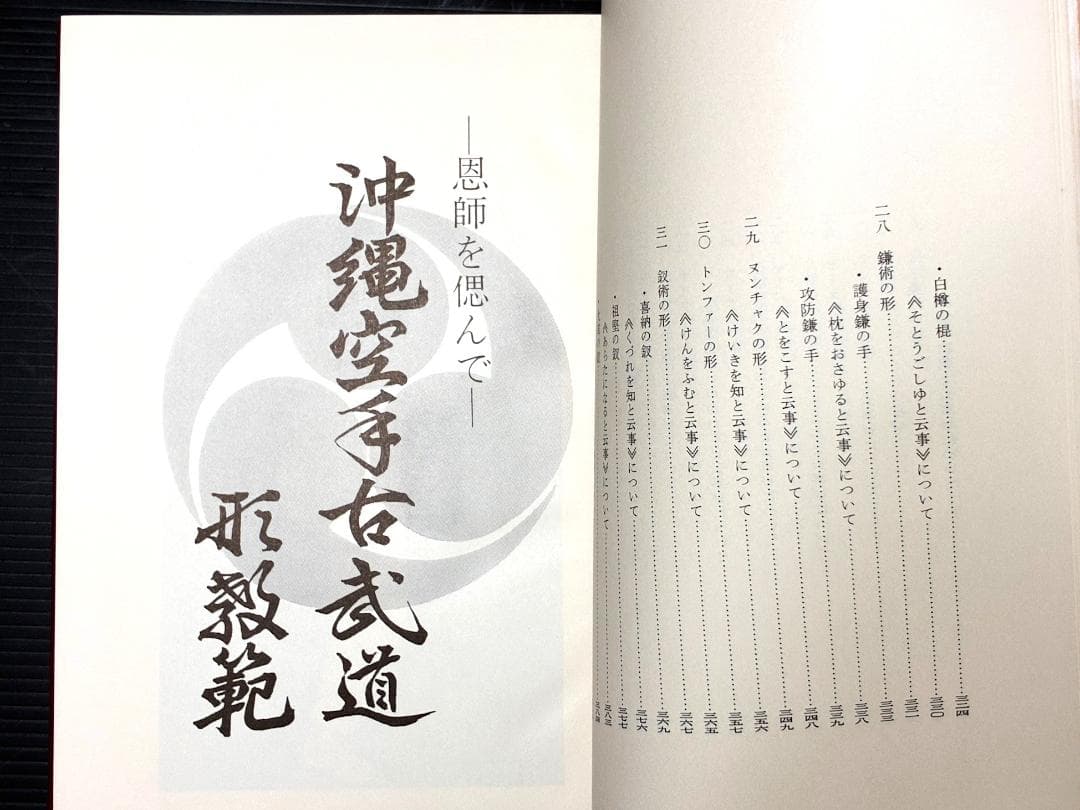 ・白樽の棍……三二四
《そとうごしゆと云事》について……三三〇
二八 鎌術の形……三三一
・護身鎌の手……三三三
《枕をおさゆると云事》について……三三八
・攻防鎌の手……三三九
《とをこすと云事》について……三四八
二九 ヌンチャクの形……三四九
《けいきを知と云事》について……三五六
三〇 トンファーの形……三五七
《けんをふむと云事》について……三六五
三一 釵術の形……三六七
・喜納の釵……三六九
《くづれを知と云事》について……三七六
・祖堅の釵……三七七
《あらたになると云事》について……三八三
の釵……三八四
―恩師を偲んで―
沖縄空手古武道
形教範